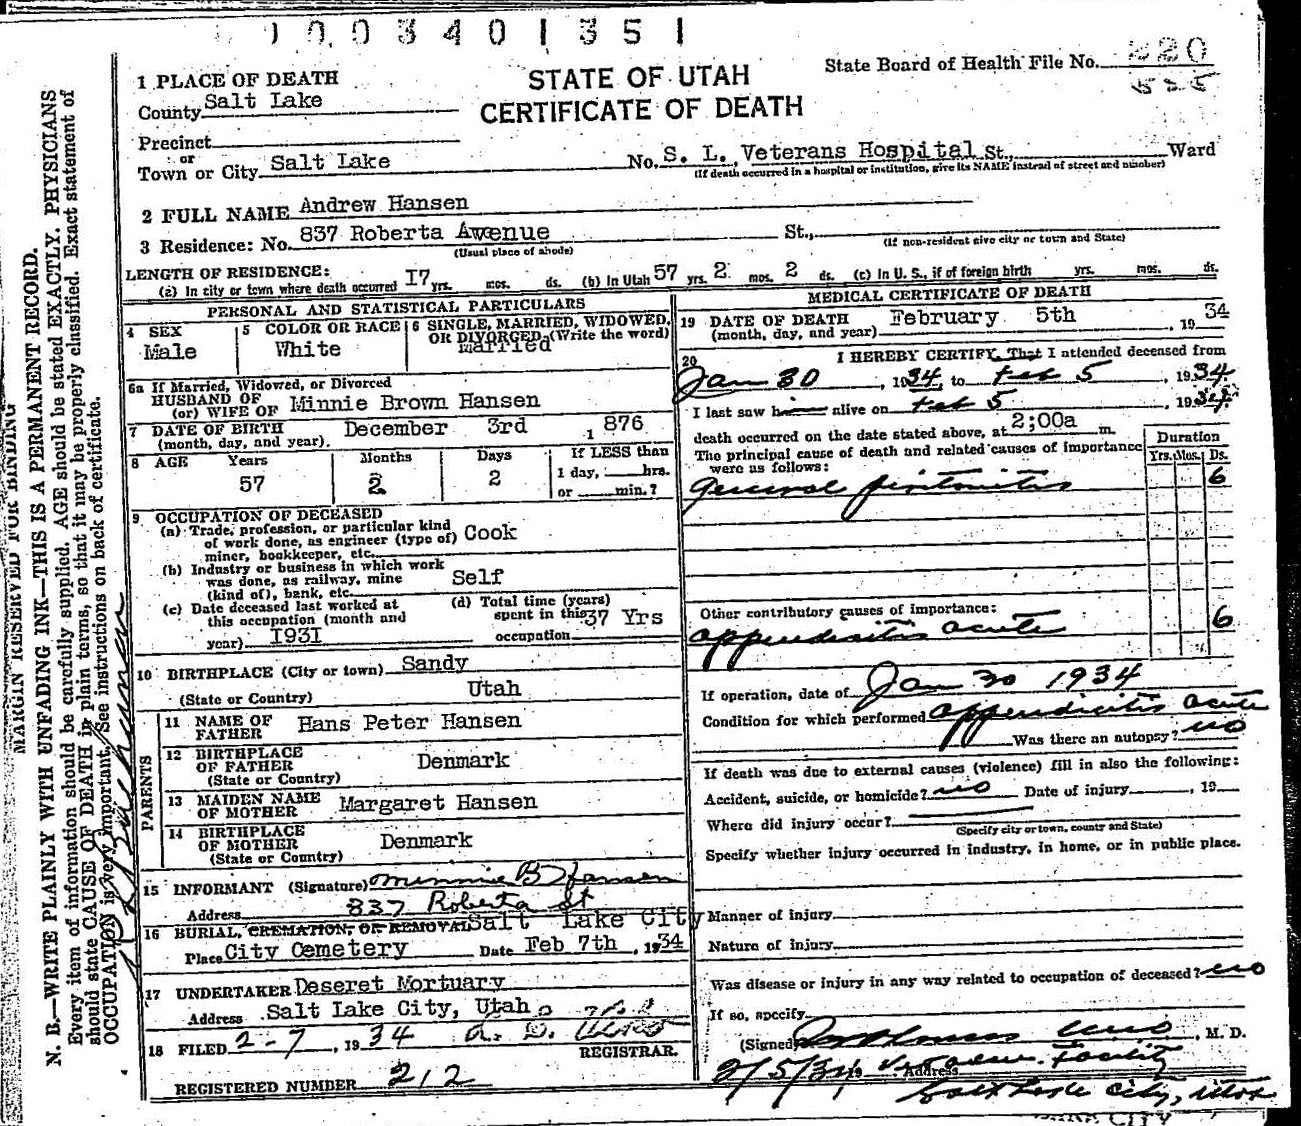 1003401351
STATE OF UTAH
CERTIFICATE OF DEATH
State Board of Health File No. 220
525
1 PLACE OF DEATH
County Salt Lake
Precinct
or
Town or City Salt Lake No. S. L. Veterans Hospital St., Ward
(If death occurred in a hospital or institution, give its NAME instead of street and number)
2 FULL NAME Andrew Hansen
3 Residence: No. 837 Roberta Avenue St.,
(Usual place of abode) (If non-resident give city or town and State)
LENGTH OF RESIDENCE:
(a) In city or town where death occurred 17 yrs. mos. ds. (b) In Utah 57 yrs. 2 mos. 2 ds. (c) In U. S., if of foreign birth yrs. mos. ds.
PERSONAL AND STATISTICAL PARTICULARS
4 SEX
Male
5 COLOR OR RACE
White
6 SINGLE, MARRIED, WIDOWED, OR DIVORCED (Write the word)
married
6a If Married, Widowed, or Divorced
HUSBAND OF
(or) WIFE OF Minnie Brown Hansen
7 DATE OF BIRTH December 3rd 1876
(month, day, and year)
8 AGE Years Months Days If LESS than
57 2 2 1 day, hrs.
or min.?
9 OCCUPATION OF DECEASED
(a) Trade, profession, or particular kind
of work done, as engineer (type of) Cook
miner, bookkeeper, etc.
(b) Industry or business in which work
was done, as railway, mine Self
(kind of), bank, etc.
(c) Date deceased last worked at
this occupation (month and
year) 1931
(d) Total time (years)
spent in this 37 Yrs
occupation
10 BIRTHPLACE (City or town) Sandy
(State or Country) Utah
PARENTS
11 NAME OF
FATHER Hans Peter Hansen
12 BIRTHPLACE
OF FATHER Denmark
(State or Country)
13 MAIDEN NAME
OF MOTHER Margaret Hansen
14 BIRTHPLACE
OF MOTHER Denmark
(State or Country)
15 INFORMANT (Signature) Minnie B Hansen
Address 837 Roberta St
16 BURIAL, CREMATION, OR REMOVAL Salt Lake City
Place City Cemetery Date Feb 7th, 1934
17 UNDERTAKER Deseret Mortuary
Address Salt Lake City, Utah
18 FILED 2-7, 1934
REGISTRAR.
REGISTERED NUMBER 212
MEDICAL CERTIFICATE OF DEATH
19 DATE OF DEATH February 5th 1934
(month, day, and year)
20 I HEREBY CERTIFY, That I attended deceased from
Jan 30, 1934, to Feb 5, 1934.
I last saw him alive on Feb 5, 1934.
death occurred on the date stated above, at 2;00a m.
The principal cause of death and related causes of importance
were as follows:
Duration
Yrs. Mos. Ds.
general peritonitis 6
Other contributory causes of importance:
appendicitis acute 6
If operation, date of Jan 30 1934
Condition for which performed appendicitis acute
Was there an autopsy? no
If death was due to external causes (violence) fill in also the following:
Accident, suicide, or homicide? no Date of injury, 19
Where did injury occur?
(Specify city or town, county and State)
Specify whether injury occurred in industry, in home, or in public place.
Manner of injury
Nature of injury
Was disease or injury in any way related to occupation of deceased? no
If so, specify
(Signed), M. D.
2/5/34 Address Facility
Salt Lake City, Utah
MARGIN RESERVED FOR BINDING
N. B.—WRITE PLAINLY WITH UNFADING INK—THIS IS A PERMANENT RECORD.
Every item of information should be carefully supplied. AGE should be stated EXACTLY. PHYSICIANS
should state CAUSE OF DEATH in plain terms, so that it may be properly classified. Exact statement of
OCCUPATION is very important. See instructions on back of certificate.